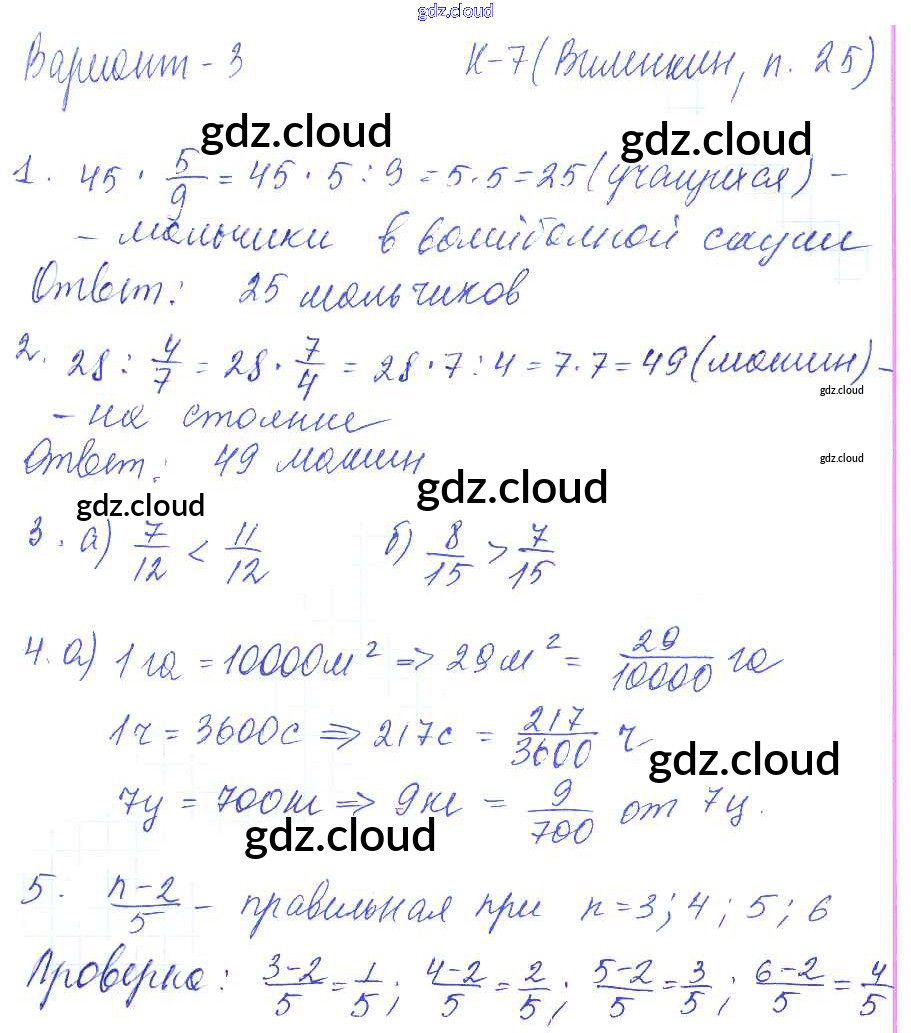 gdz.cloud
Вариант - 3 К-7 (Виленкин, п. 25)
gdz.cloud gdz.cloud
1. 45 · 5/9 = 45 · 5 : 9 = 5 · 5 = 25 (учащихся) -
- мальчики в волейбольной секции
Ответ: 25 мальчиков
2. 28 : 4/7 = 28 · 7/4 = 28 · 7 : 4 = 7 · 7 = 49 (машин) -
gdz.cloud
- на стоянке
Ответ: 49 машин
gdz.cloud
gdz.cloud gdz.cloud
3. а) 7/12 < 11/12 б) 8/15 > 7/15
4. а) 1 га = 10000 м² => 29 м² = 29/10000 га
1 ч = 3600 с => 217 с = 217/3600 ч
gdz.cloud
7 ц = 700 кг => 9 кг = 9/700 от 7 ц.
gdz.cloud
5. n-2/5 - правильная при n = 3; 4; 5; 6
Проверка: 3-2/5 = 1/5; 4-2/5 = 2/5; 5-2/5 = 3/5; 6-2/5 = 4/5